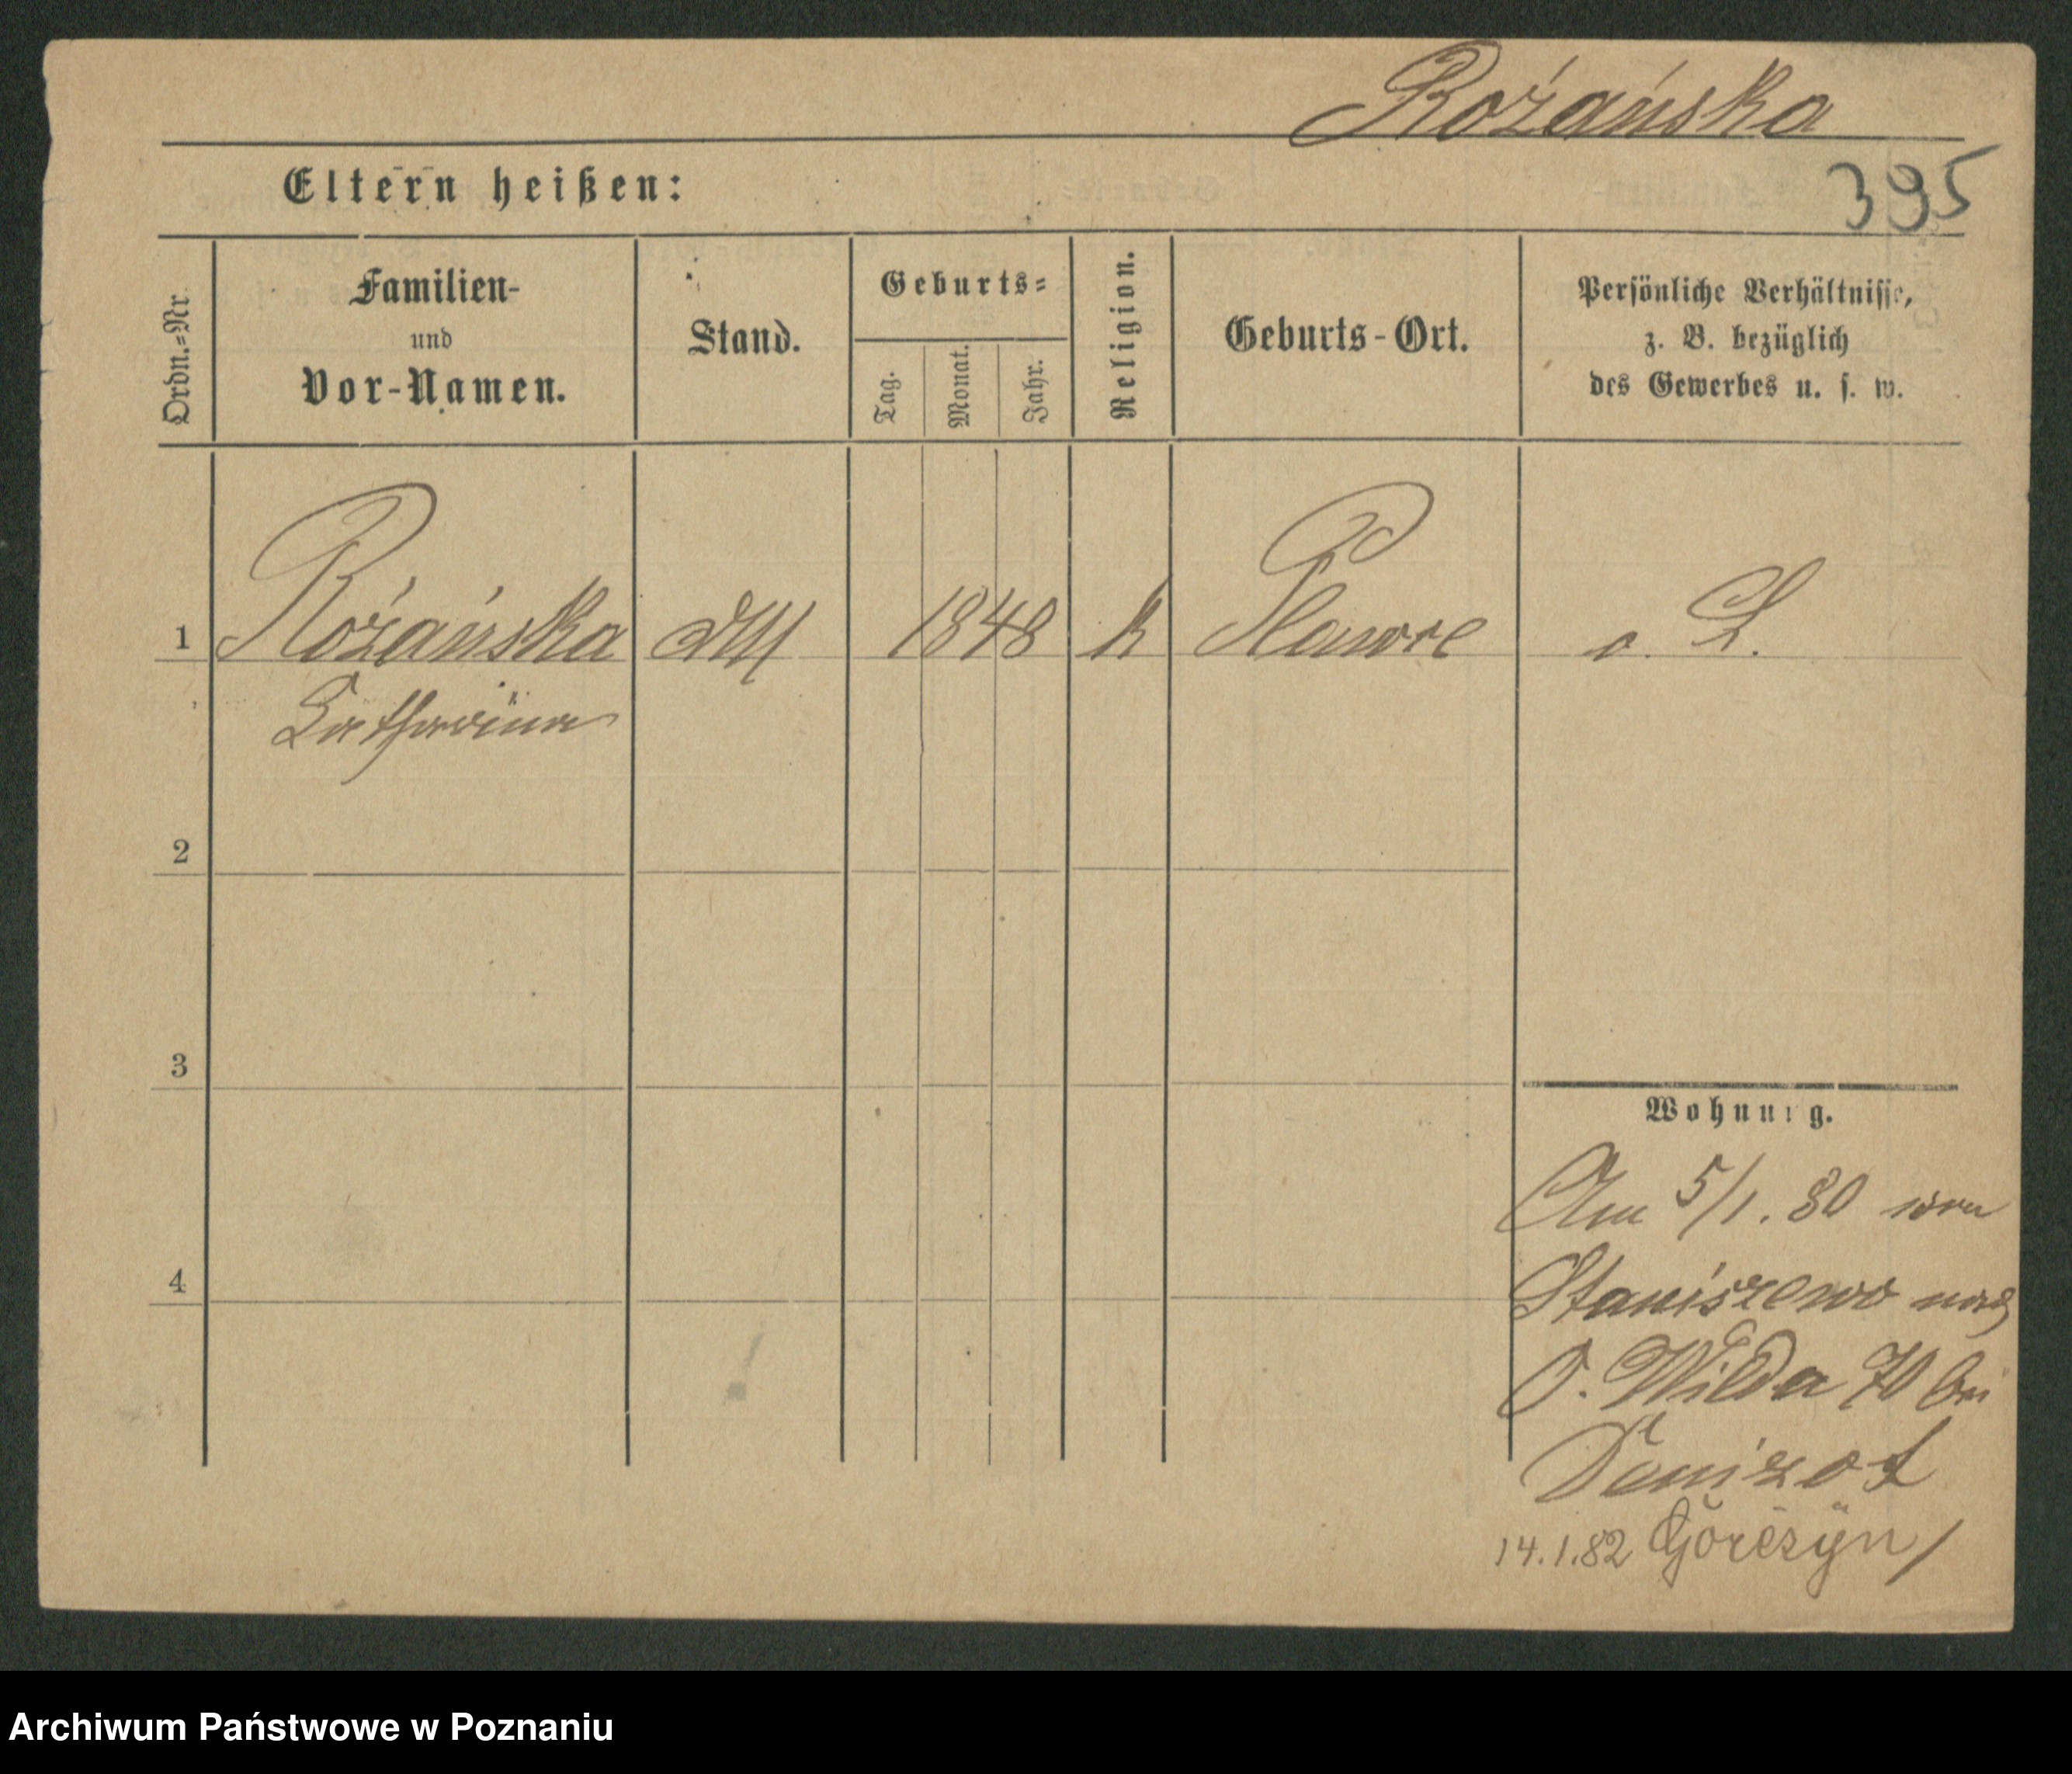 Rożańska
395
Eltern heißen:
Ordn.=Nr.
Familien-
und
Vor-Namen.
Stand.
Geburts=
Tag.
Monat.
Jahr.
Religion.
Geburts-Ort.
Persönliche Verhältnisse,
z. B. bezüglich
des Gewerbes u. s. w.
1 Rożańska 1848 k o. L.
Catharina
2
3
Wohnung.
Am 5/1. 80 von
4
Staniszewo nach
O. Wilda 70 bei
Denizot
14.1.82 Gorczyn /
Archiwum Państwowe w Poznaniu